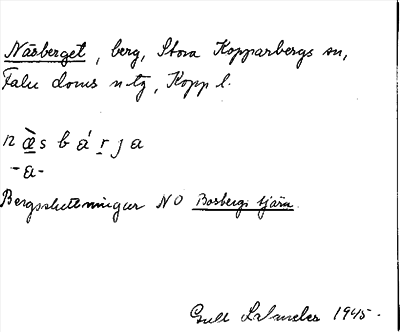 Näsberget, berg, Stora Kopparbergs sn,
Falu doms ntg, Kopp l.
n æ̀ s b á r j a
-a-
Bergssluttningar NO Bosbergs tjärn
1945.